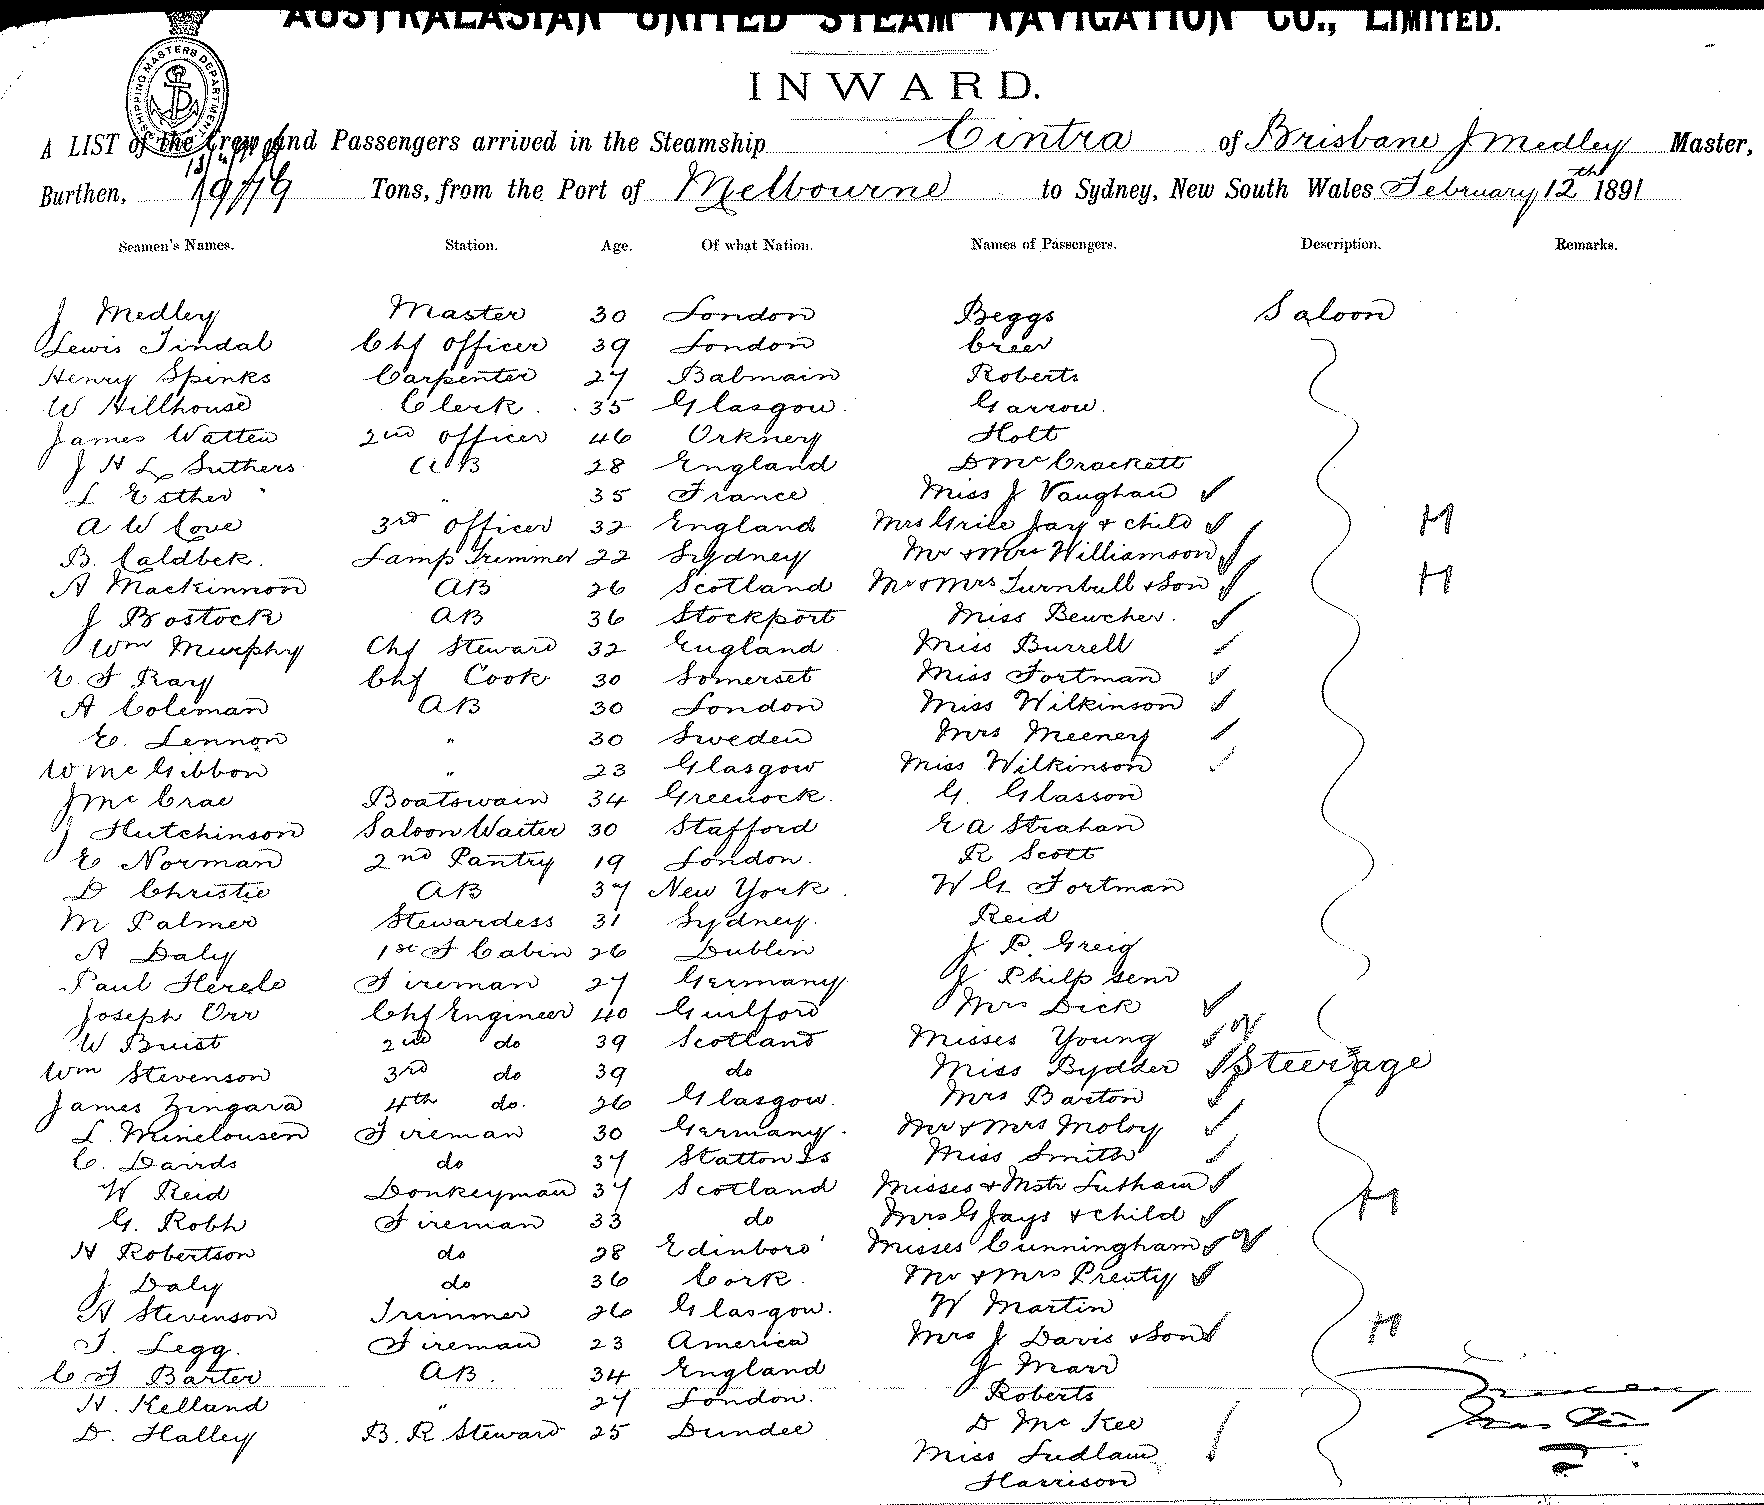 AUSTRALASIAN UNITED STEAM NAVIGATION CO., LIMITED.
SHIPPING MASTERS DEPARTMENT
INWARD.
A LIST of the Crew and Passengers arrived in the Steamship Cintra of Brisbane J Medley Master,
Burthen, 1979 Tons, from the Port of Melbourne to Sydney, New South Wales February 12th 1891
Seamen's Names. Station. Age. Of what Nation. Names of Passengers. Description. Remarks.
J Medley Master 30 London Beggs Saloon
Lewis Tindal Chf Officer 39 London Creer
Henry Spinks Carpenter 27 Balmain Roberts
W Hillhouse Clerk. 35 Glasgow. Garrow.
James Watten 2nd Officer 46 Orkney Holt
J H L Suthers AB 28 England D McCrackett
L Esther " 35 France Miss J Vaughan
A W Cove 3rd Officer 32 England Mrs Grile Jay & child H
B. Caldbek. Lamp Trimmer 22 Sydney Mr & Mrs Williamson
A Mackinnon AB 26 Scotland Mr & Mrs Turnbull & Son H
J Bostock AB 36 Stockport Miss Bewcher.
Wm Murphy Chf Steward 32 England Miss Burrell
E. J Ray Chf Cook 30 Somerset Miss Fortman
A Coleman AB 30 London Miss Wilkinson
E. Lennon " 30 Sweden Mrs Meenery
W McGibbon " 23 Glasgow Miss Wilkinson
J McCrae Boatswain 34 Greenock. G. Glasson
J Hutchinson Saloon Waiter 30 Stafford E A Strahan
E Norman 2nd Pantry 19 London. R Scott
D Christie AB 37 New York. W G Fortman
M Palmer Stewardess 31 Sydney. Reid
A Daly 1st F Cabin 26 Dublin J P. Greig
Paul Fireman 27 Germany J Philp senr
Joseph Orr Chf Engineer 40 Guilford Mrs Dick
W Buist 2nd do 39 Scotland Misses Young 2
Wm Stevenson 3rd do 39 do Miss Bydder Steerage
James Zingara 4th do. 26 Glasgow. Mrs Barton
L. Minelousen Fireman 30 Germany. Mr & Mrs Moloy
C. Dairds do 37 Statton Is Miss Smith
W Reid Donkeyman 37 Scotland Misses & Mstr Lutham H
G. Robh Fireman 33 do Mrs G Jays & child
H Robertson do 28 Edinboro' Misses Cunningham 2
J Daly do 36 Cork. Mr & Mrs Prenty
A Stevenson Trimmer 26 Glasgow. W Martin
J. Legg. Fireman 23 America Mrs J Davis & Son H
C J Barter AB. 34 England J Marr
H. Kelland " 27 London. Roberts
D. Halley B. R Steward 25 Dundee D McKee
Miss Ludlam
Harrison